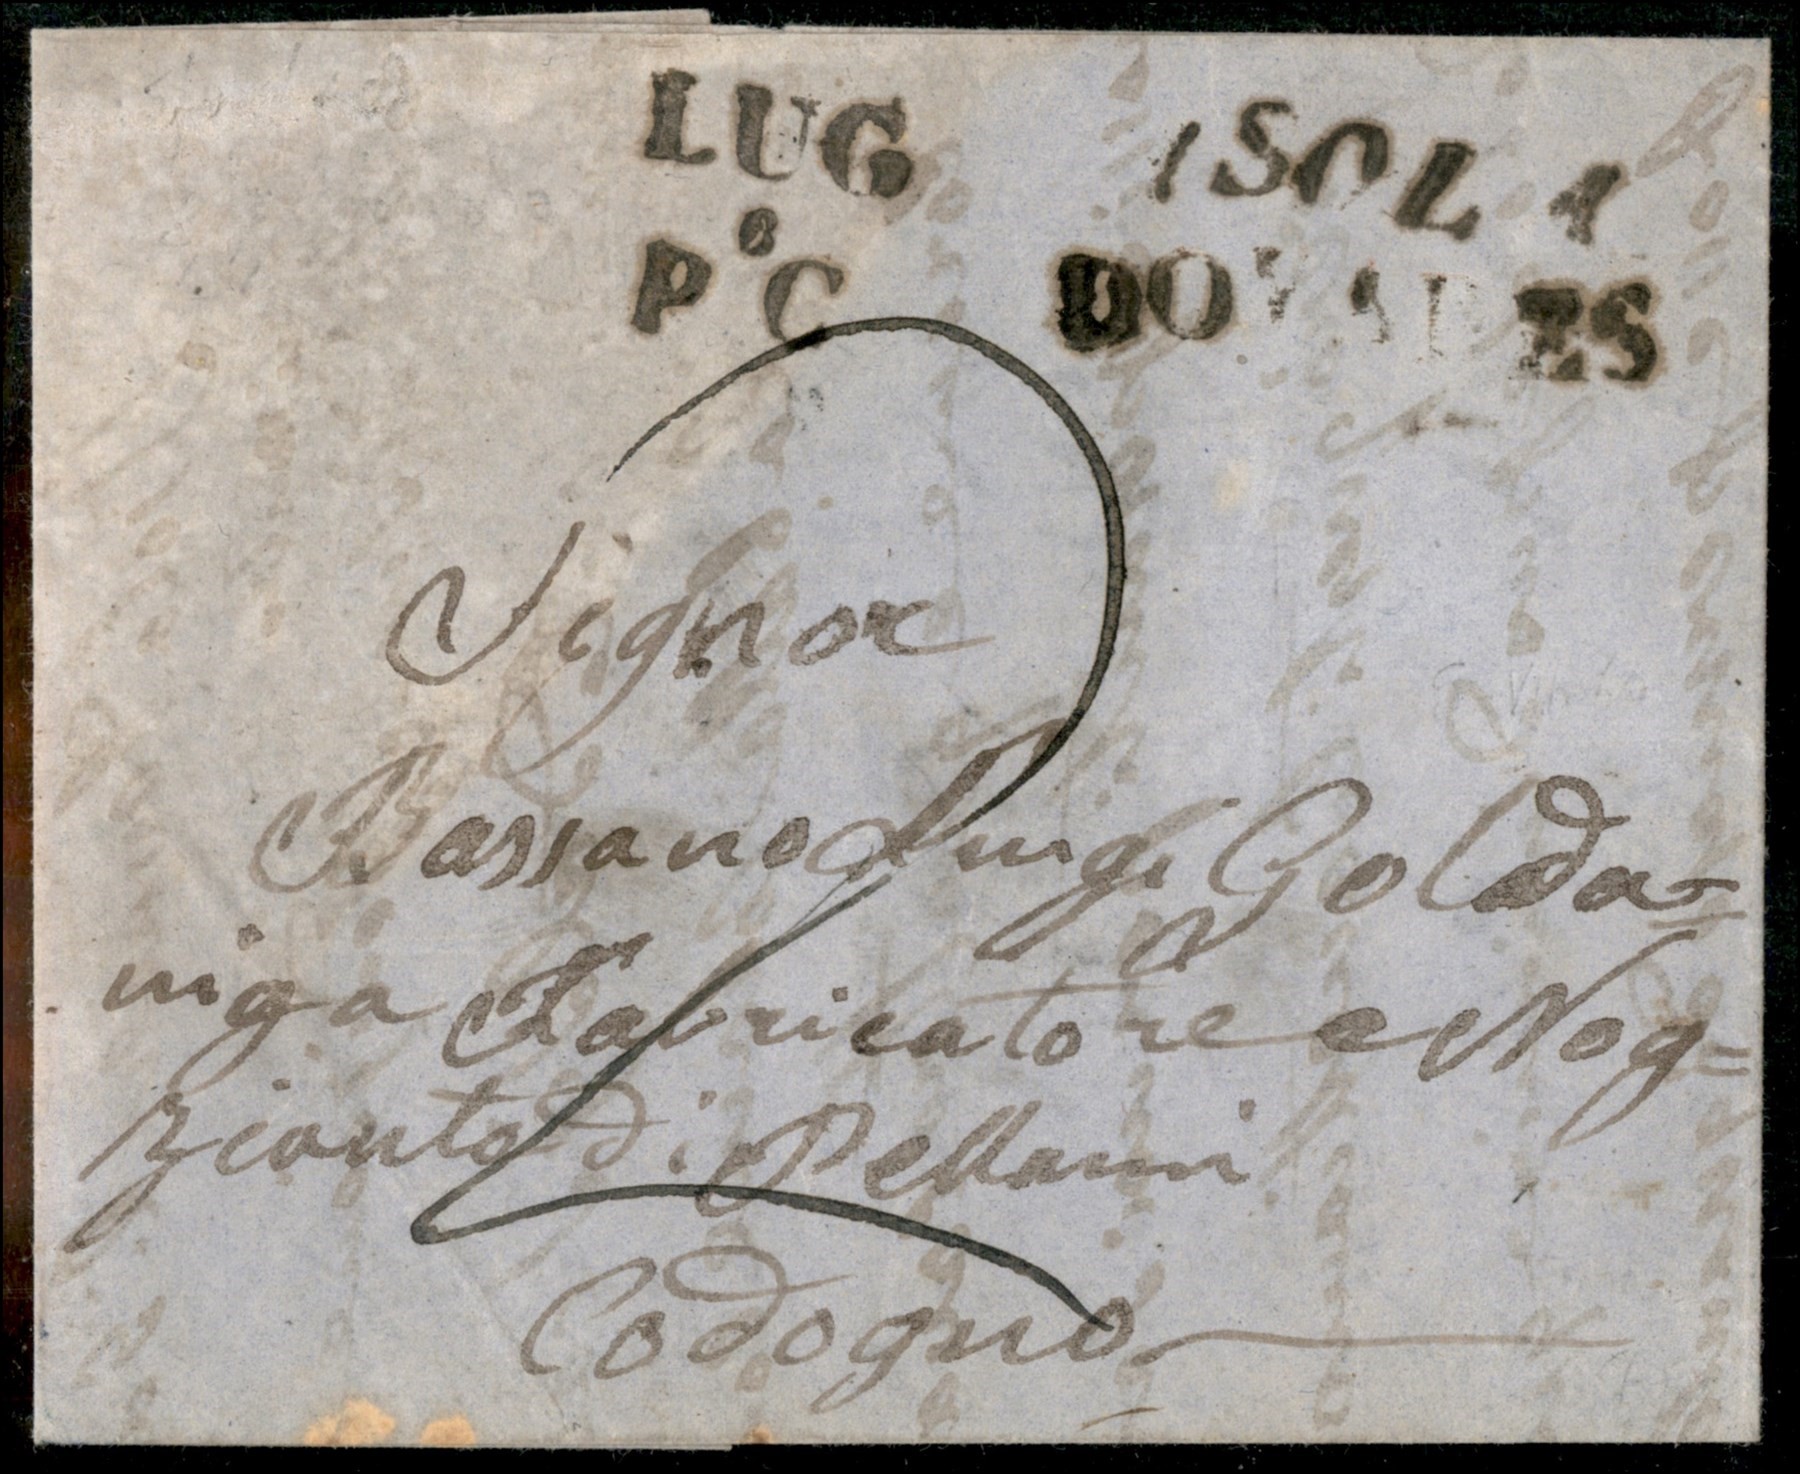 LUG
P.º C
ISOLA
DOVARES
2
Signor
Bassano Luigi Golda=
niga Fabricatore e Neg=
ziante di Pellami
Codogno